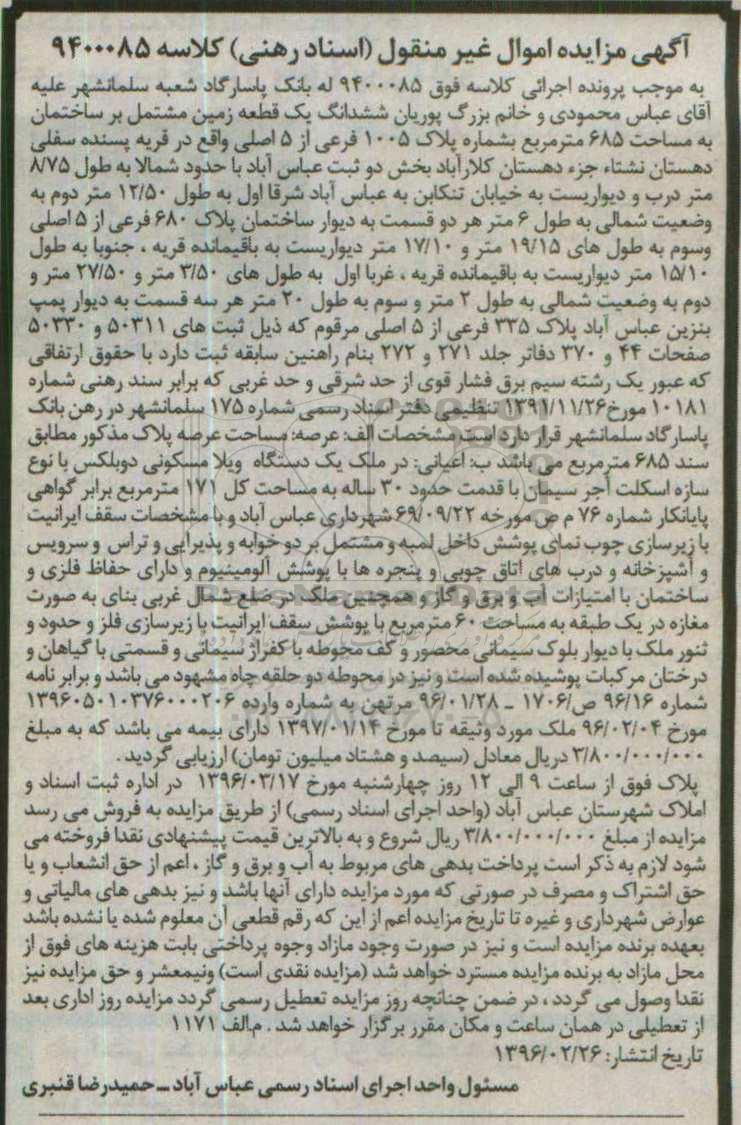 آگهی مزایده اموال غیر منقول (اسناد رهنی) کلاسه ۹۴۰۰۰۸۵
به موجب پرونده اجرائی کلاسه فوق ۹۴۰۰۰۸۵ له بانک پاسارگاد شعبه سلمانشهر علیه
آقای عباس محمودی و خانم بزرگ پوریان ششدانگ یک قطعه زمین مشتمل بر ساختمان
به مساحت ۶۸۵ مترمربع بشماره پلاک ۱۰۰۵ فرعی از ۵ اصلی واقع در قریه پسنده سفلی
دهستان نشتاء جزء دهستان کلارآباد بخش دو ثبت عباس آباد با حدود شمالا به طول ۸/۷۵
متر درب و دیواریست به خیابان تنکابن به عباس آباد شرقا اول به طول ۱۲/۵۰ متر دوم به
وضعیت شمالی به طول ۶ متر هر دو قسمت به دیوار ساختمان پلاک ۶۸۰ فرعی از ۵ اصلی
وسوم به طول های ۱۹/۱۵ متر و ۱۷/۱۰ متر دیواریست به باقیمانده قریه ، جنوبا به طول
۱۵/۱۰ متر دیواریست به باقیمانده قریه ، غربا اول به طول های ۳/۵۰ متر و ۲۷/۵۰ متر و
دوم به وضعیت شمالی به طول ۲ متر و سوم به طول ۲۰ متر هر سه قسمت به دیوار پمپ
بنزین عباس آباد پلاک ۳۳۵ فرعی از ۵ اصلی مرقوم که ذیل ثبت های ۵۰۳۱۱ و ۵۰۳۳۰
صفحات ۴۴ و ۳۷۰ دفاتر جلد ۲۷۱ و ۲۷۲ بنام راهنین سابقه ثبت دارد با حقوق ارتفاقی
که عبور یک رشته سیم برق فشار قوی از حد شرقی و حد غربی که برابر سند رهنی شماره
۱۰۱۸۱ مورخ ۱۳۹۱/۱۱/۲۶ تنظیمی دفتر اسناد رسمی شماره ۱۷۵ سلمانشهر در رهن بانک
پاسارگاد سلمانشهر قرار دارد است مشخصات الف: عرصه: مساحت عرصه پلاک مذکور مطابق
سند ۶۸۵ مترمربع می باشد ب: اعیانی: در ملک یک دستگاه ویلا مسکونی دوبلکس با نوع
سازه اسکلت آجر سیمان با قدمت حدود ۳۰ ساله به مساحت کل ۱۷۱ مترمربع برابر گواهی
پایانکار شماره ۷۶ م ص مورخه ۶۹/۰۹/۲۲ شهرداری عباس آباد و با مشخصات سقف ایرانیت
با زیرسازی چوب نمای پوشش داخل لمبه و مشتمل بر دو خوابه و پذیرایی و تراس و سرویس
و آشپزخانه و درب های اتاق چوبی و پنجره ها با پوشش آلومینیوم و دارای حفاظ فلزی و
ساختمان با امتیازات آب و برق و گاز و همچنین ملک در ضلع شمال غربی بنای به صورت
مغازه در یک طبقه به مساحت ۶۰ مترمربع با پوشش سقف ایرانیت با زیرسازی فلز و حدود و
ثنور ملک با دیوار بلوک سیمانی محصور و کف محوطه با کفراژ سیمانی و قسمتی با گیاهان و
درختان مرکبات پوشیده شده است و نیز در محوطه دو حلقه چاه مشهود می باشد و برابر نامه
شماره ۹۶/۱۶ ص/۱۷۰۶ ـ ۹۶/۰۱/۲۸ مرتهن به شماره وارده ۱۳۹۶۰۵۰۱۰۳۷۶۰۰۰۲۰۶
مورخ ۹۶/۰۲/۰۴ ملک مورد وثیقه تا مورخ ۱۳۹۷/۰۱/۱۴ دارای بیمه می باشد که به مبلغ
۳/۸۰۰/۰۰۰/۰۰۰ دریال معادل (سیصد و هشتاد میلیون تومان) ارزیابی گردید .
پلاک فوق از ساعت ۹ الی ۱۲ روز چهارشنبه مورخ ۱۳۹۶/۰۳/۱۷ در اداره ثبت اسناد و
املاک شهرستان عباس آباد (واحد اجرای اسناد رسمی) از طریق مزایده به فروش می رسد
مزایده از مبلغ ۳/۸۰۰/۰۰۰/۰۰۰ ریال شروع و به بالاترین قیمت پیشنهادی نقدا فروخته می
شود لازم به ذکر است پرداخت بدهی های مربوط به آب و برق و گاز ، اعم از حق انشعاب و یا
حق اشتراک و مصرف در صورتی که مورد مزایده دارای آنها باشد و نیز بدهی های مالیاتی و
عوارض شهرداری و غیره تا تاریخ مزایده اعم از این که رقم قطعی آن معلوم شده یا نشده باشد
بعهده برنده مزایده است و نیز در صورت وجود مازاد وجوه پرداختی بابت هزینه های فوق از
محل مازاد به برنده مزایده مسترد خواهد شد (مزایده نقدی است) ونیمعشر و حق مزایده نیز
نقدا وصول می گردد ، در ضمن چنانچه روز مزایده تعطیل رسمی گردد مزایده روز اداری بعد
از تعطیلی در همان ساعت و مکان مقرر برگزار خواهد شد . م.الف ۱۱۷۱
تاریخ انتشار: ۱۳۹۶/۰۲/۲۶
مسئول واحد اجرای اسناد رسمی عباس آباد ـ حمیدرضا قنبری